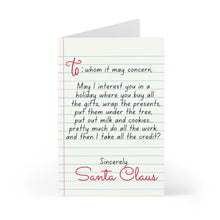 to: whom it may concern,
May I interest you in a
holiday where you buy all
the gifts, wrap the presents,
put them under the tree,
put out milk and cookies...
pretty much do all the work
and then I take all the credit?
Sincerely,
Santa Claus